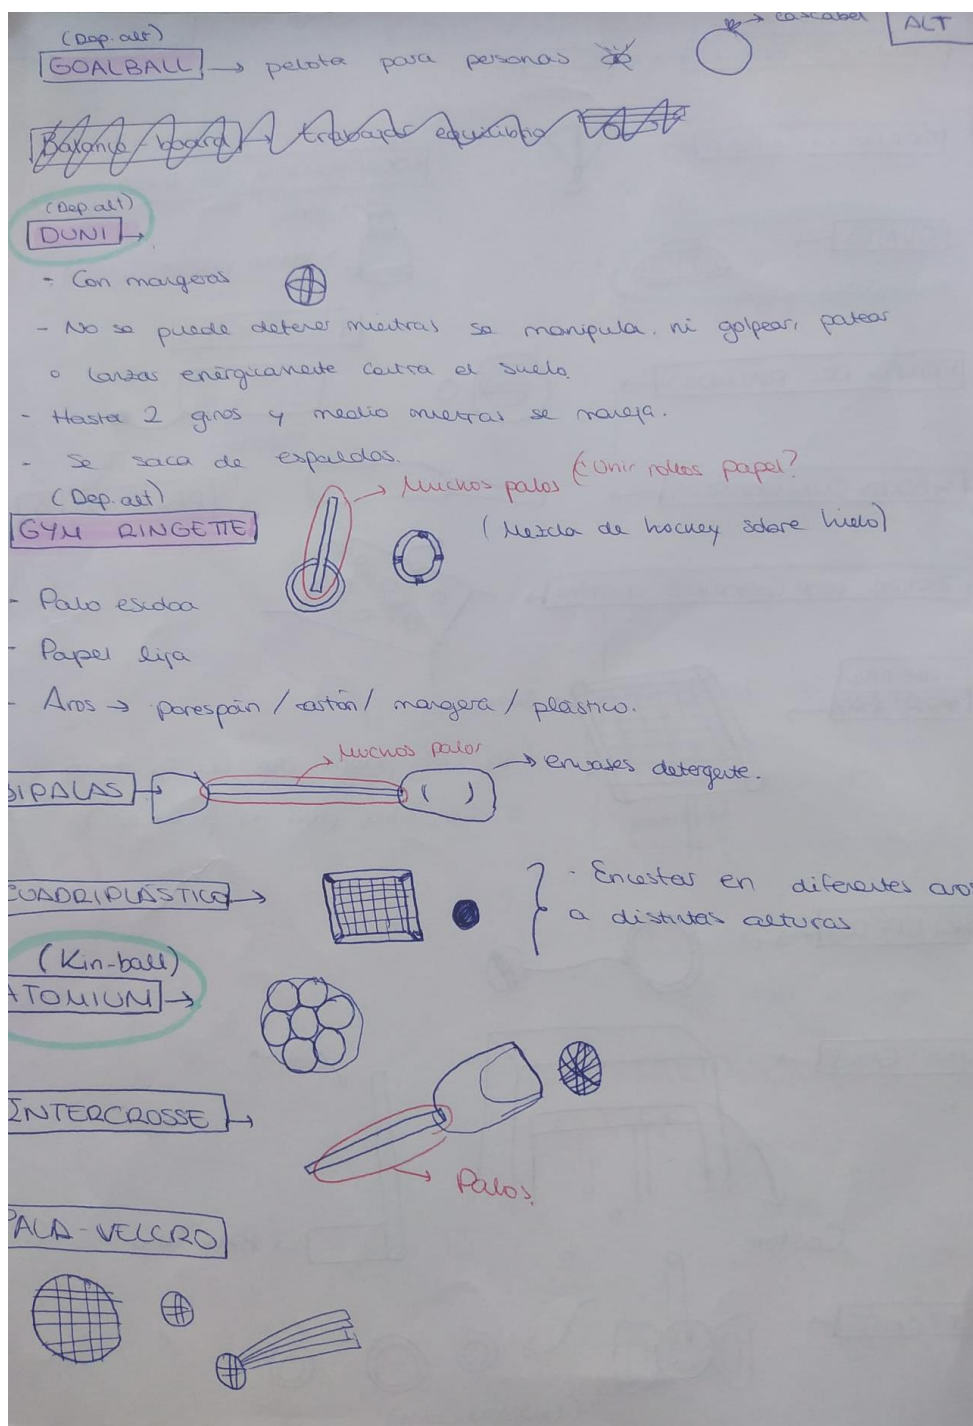 (Dep. alt)
GOALBALL → pelota para personas
→ cascabel
ALT
Balance board → trabajar equilibrio
(Dep. alt)
DUNI →
- Con mangeras
- No se puede detener mientras se manipula, ni golpear, patear
o lanzar enérgicamente contra el suelo.
- Hasta 2 giros y medio mientras se maneja.
- Se saca de espaldas.
→ Muchos palos (¿Unir rollos papel?
(Dep. alt)
GYM RINGETTE
(Mezcla de hockey sobre hielo)
- Palo escoba
- Papel lija
- Aros → porespán / cartón / mangera / plástico.
→ Muchos palos
→ envases detergente.
BIPALAS →
CUADRIPLÁSTICO →
- Encestar en diferentes aros
a distintas alturas
(Kin-ball)
ATOMIUM →
INTERCROSSE →
→ Palos.
PALA-VELCRO